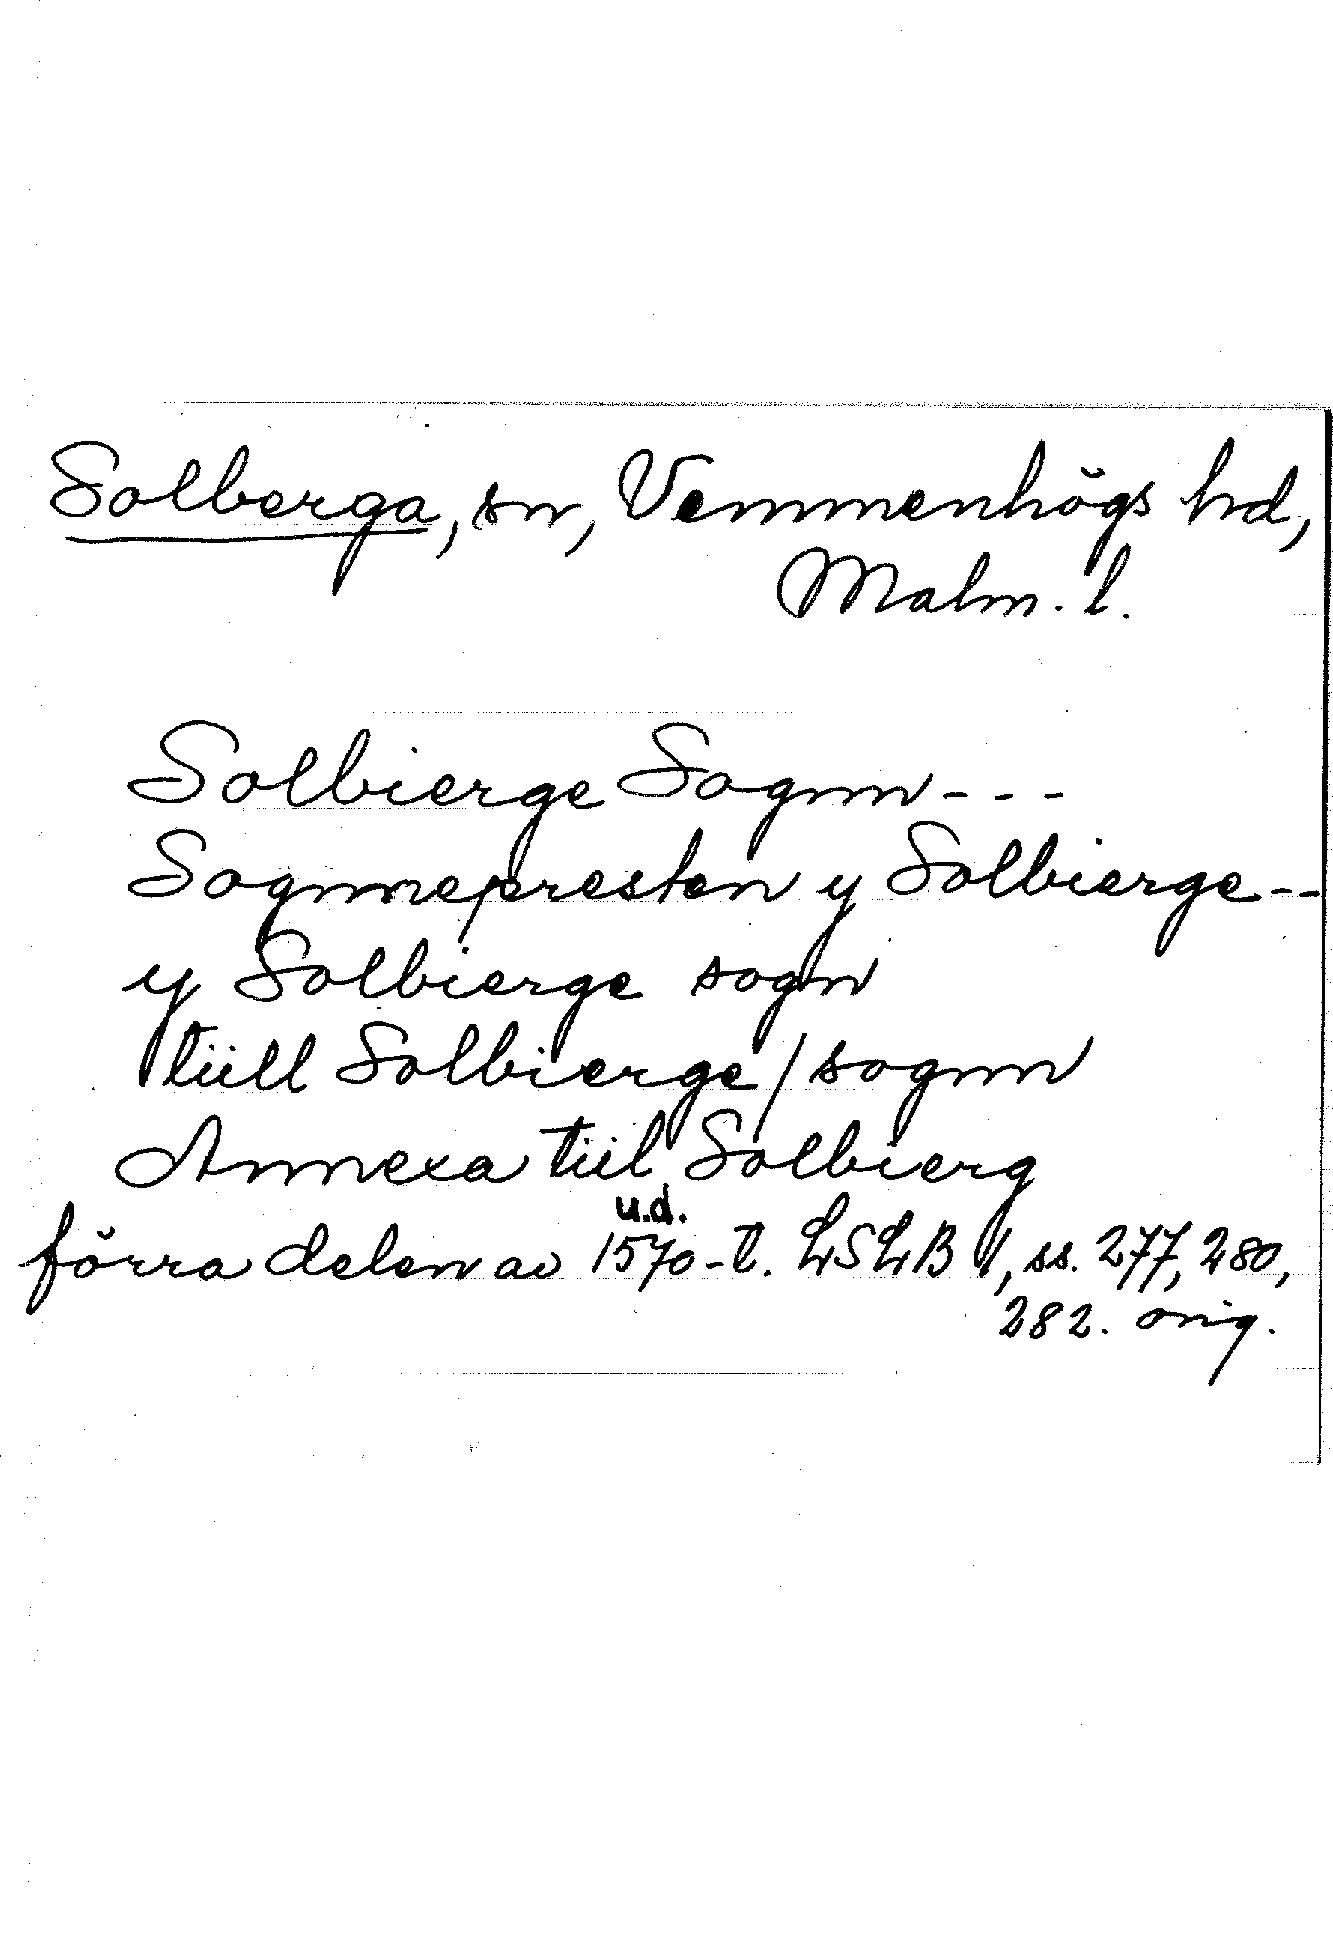 Solberga, sn, Vemmenhögs hd,
Malm. l.
Solbierge Sognn - - -
Sognnepresten y Solbierge - -
y Solbierge sogn
tiill Solbierge / sognn
Annexa tiil Solbierg
u.d.
förra delen av 1570-t. LSLB V, ss. 277, 280,
282. orig.